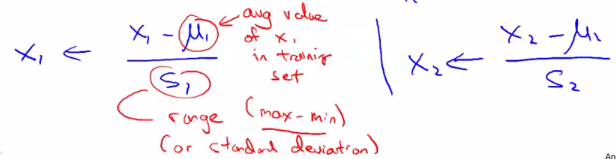 x₁ ← (x₁ - μ₁) / S₁
avg value
of x₁
in training
set
range (max-min)
(or standard deviation)
x₂ ← (x₂ - μ₂) / S₂
An